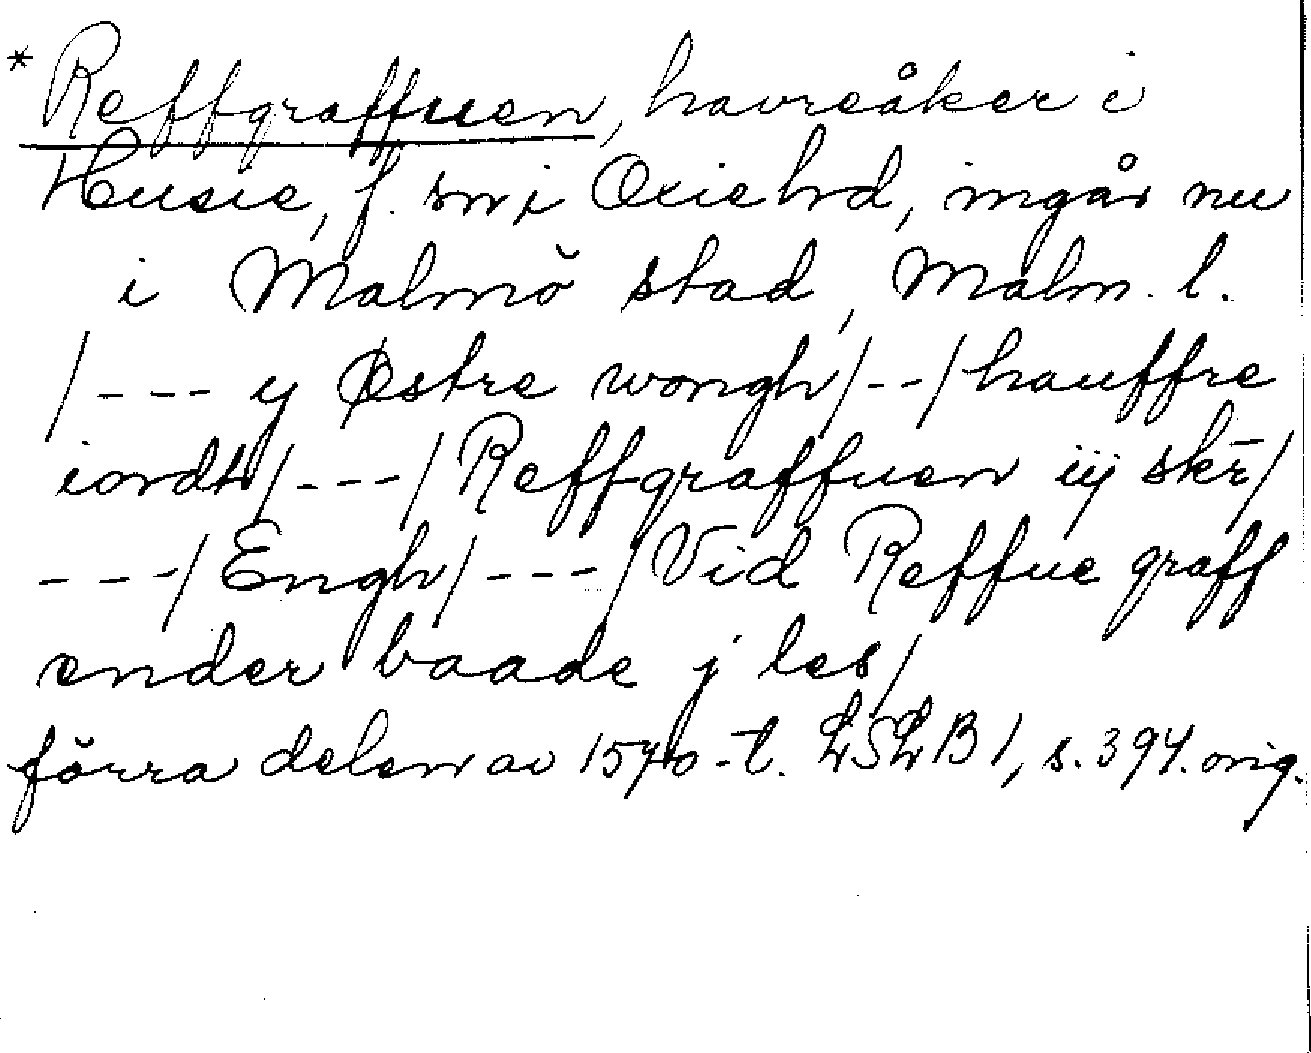 * Reffgraffuen, havreåker i
Husie, f. sn i Oxie hd, ingår nu
i Malmö stad, Malm. l.
/--- y Østre wongh/--/hauffre
iordt/---/Reffgraffuen iij skr̄/
---/Engh/---/Vid Reffue graff
ender baade j les/
förra delen av 1570-t. LSLB 1, s. 394. orig.